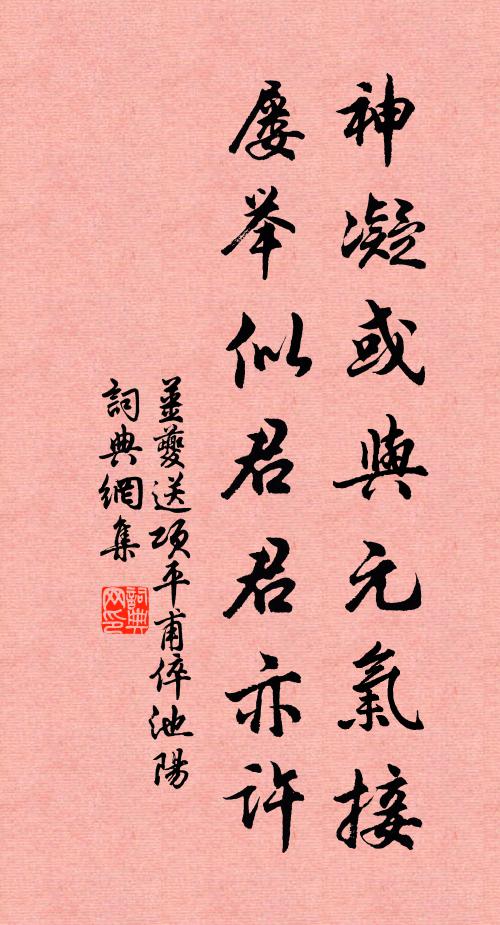 神凝或與元氣接
屡举似君君亦许
姜夔送项平甫倅池陽
詞典網集
詞典网印